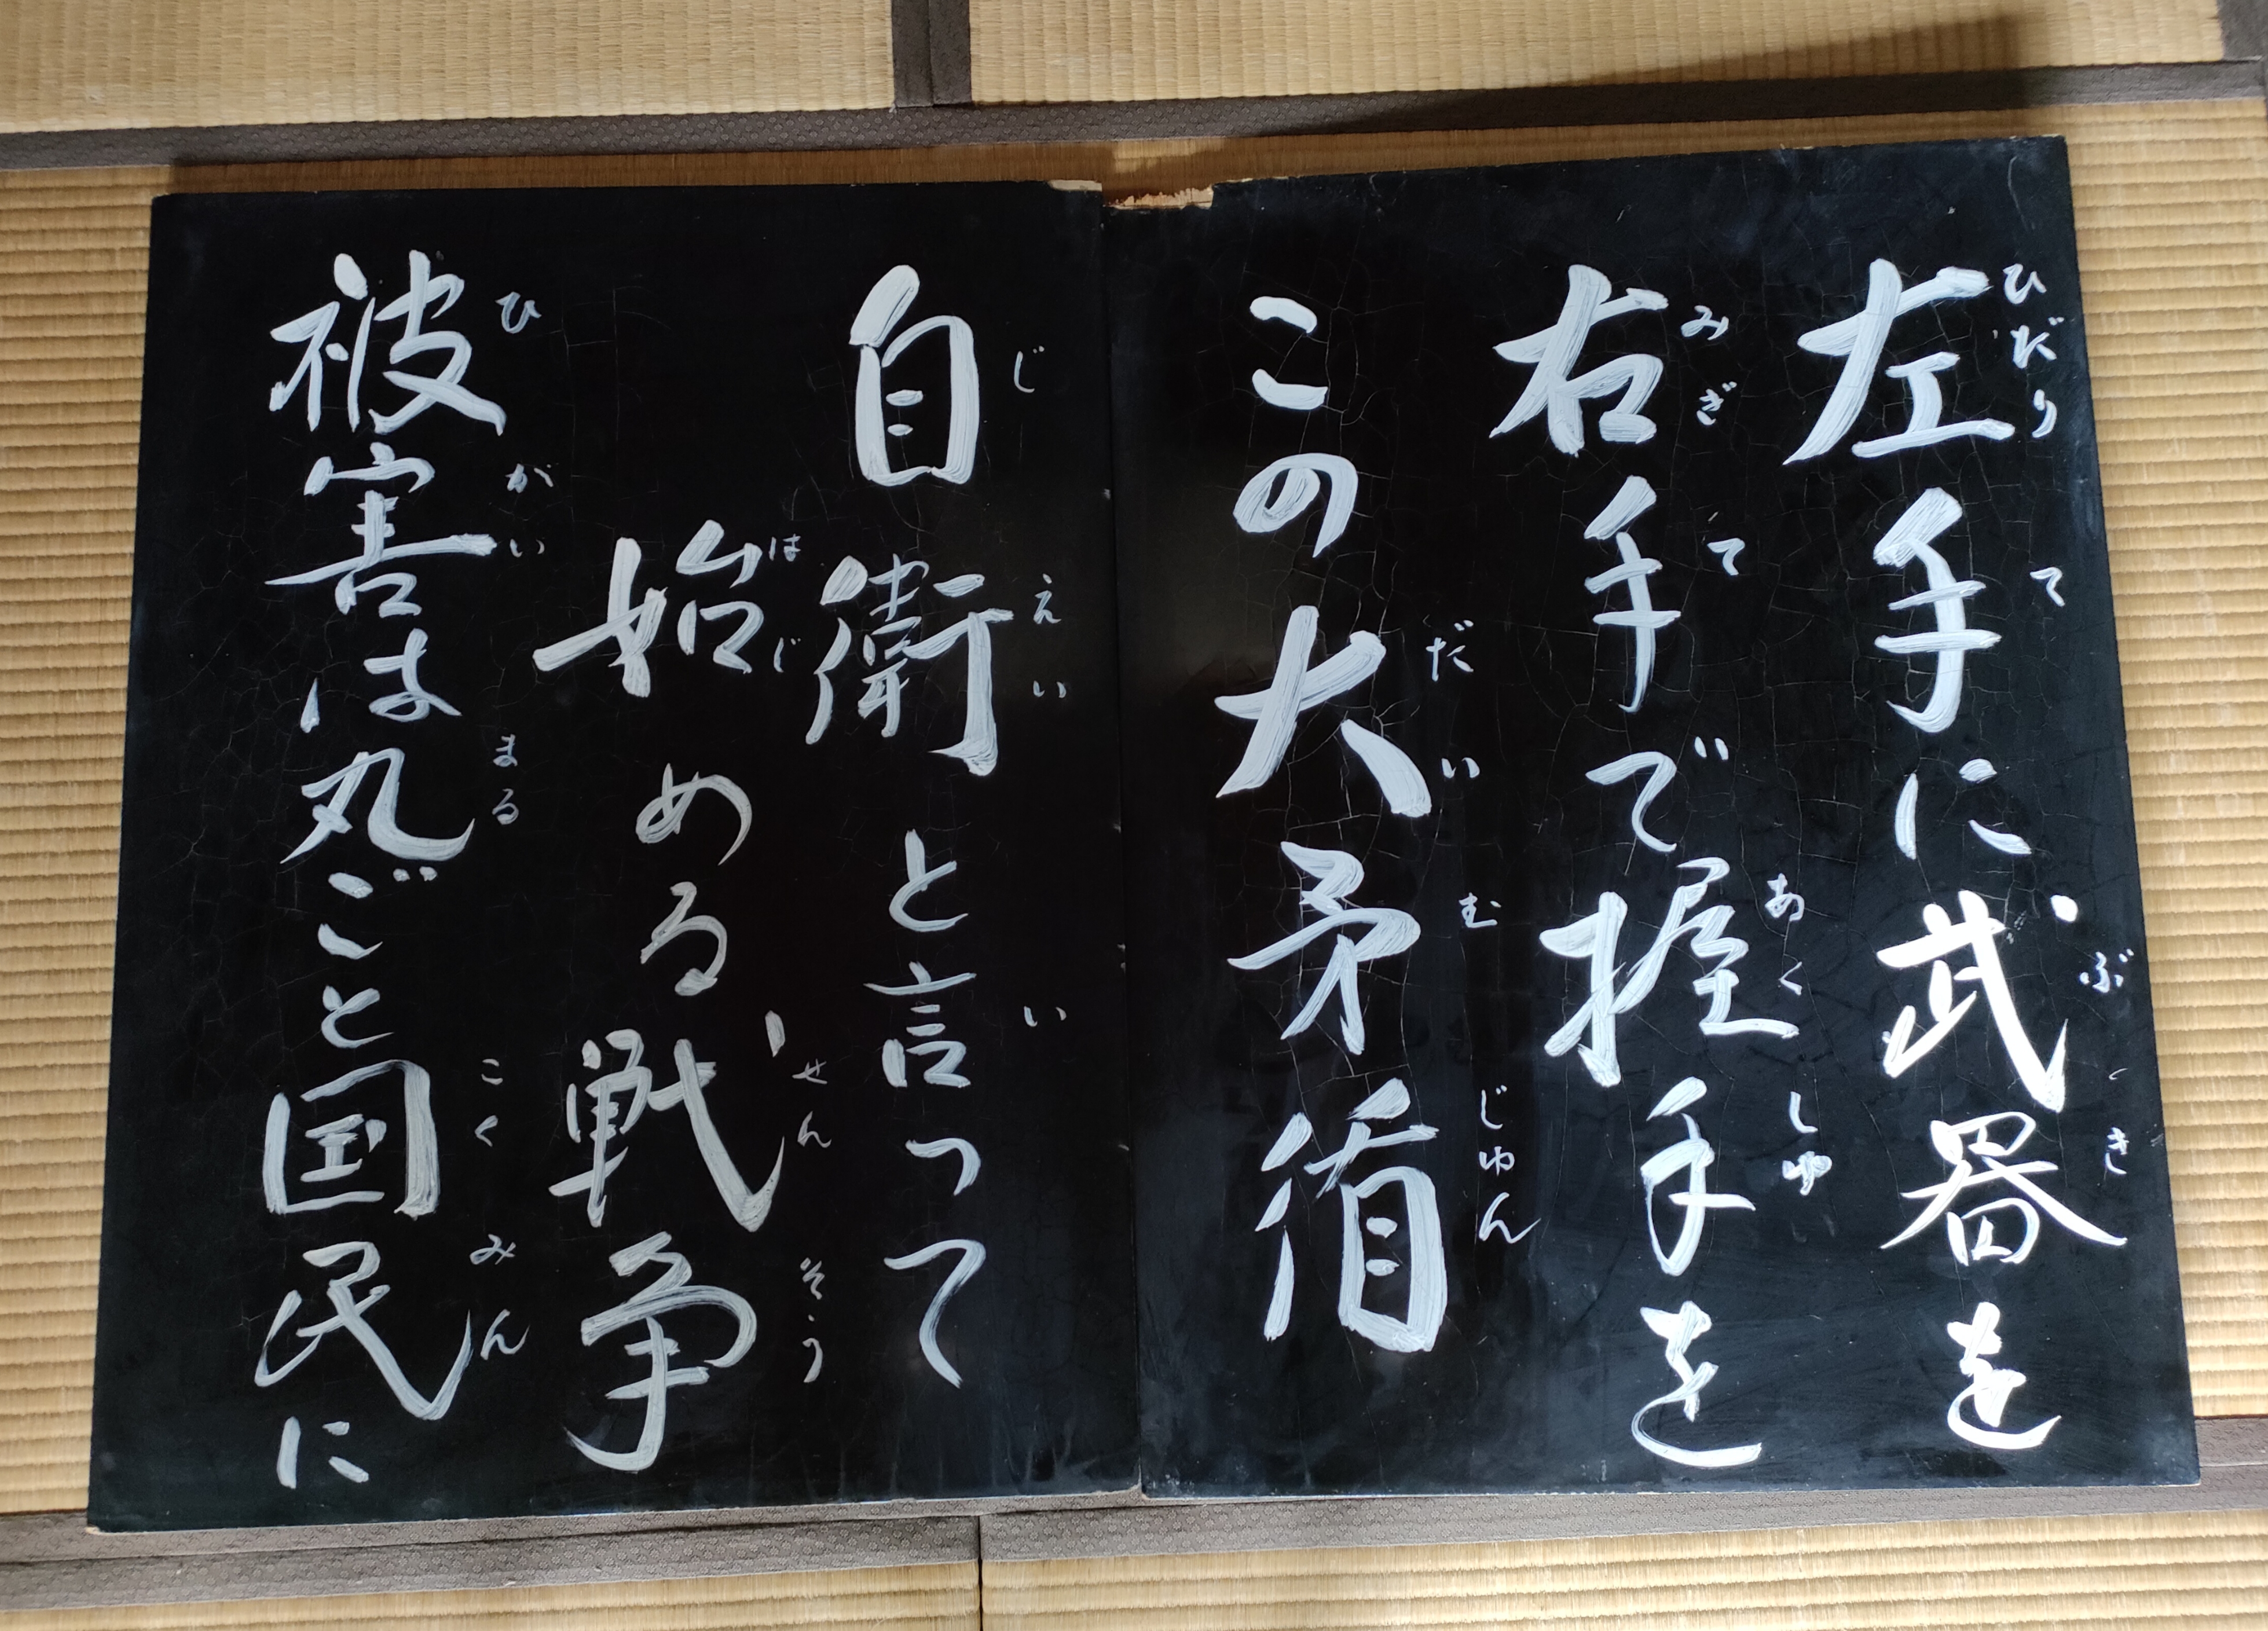 左手に武器を
右手で握手を
この大矛盾
自衛と言って
始める戦争
被害は丸ごと国民に